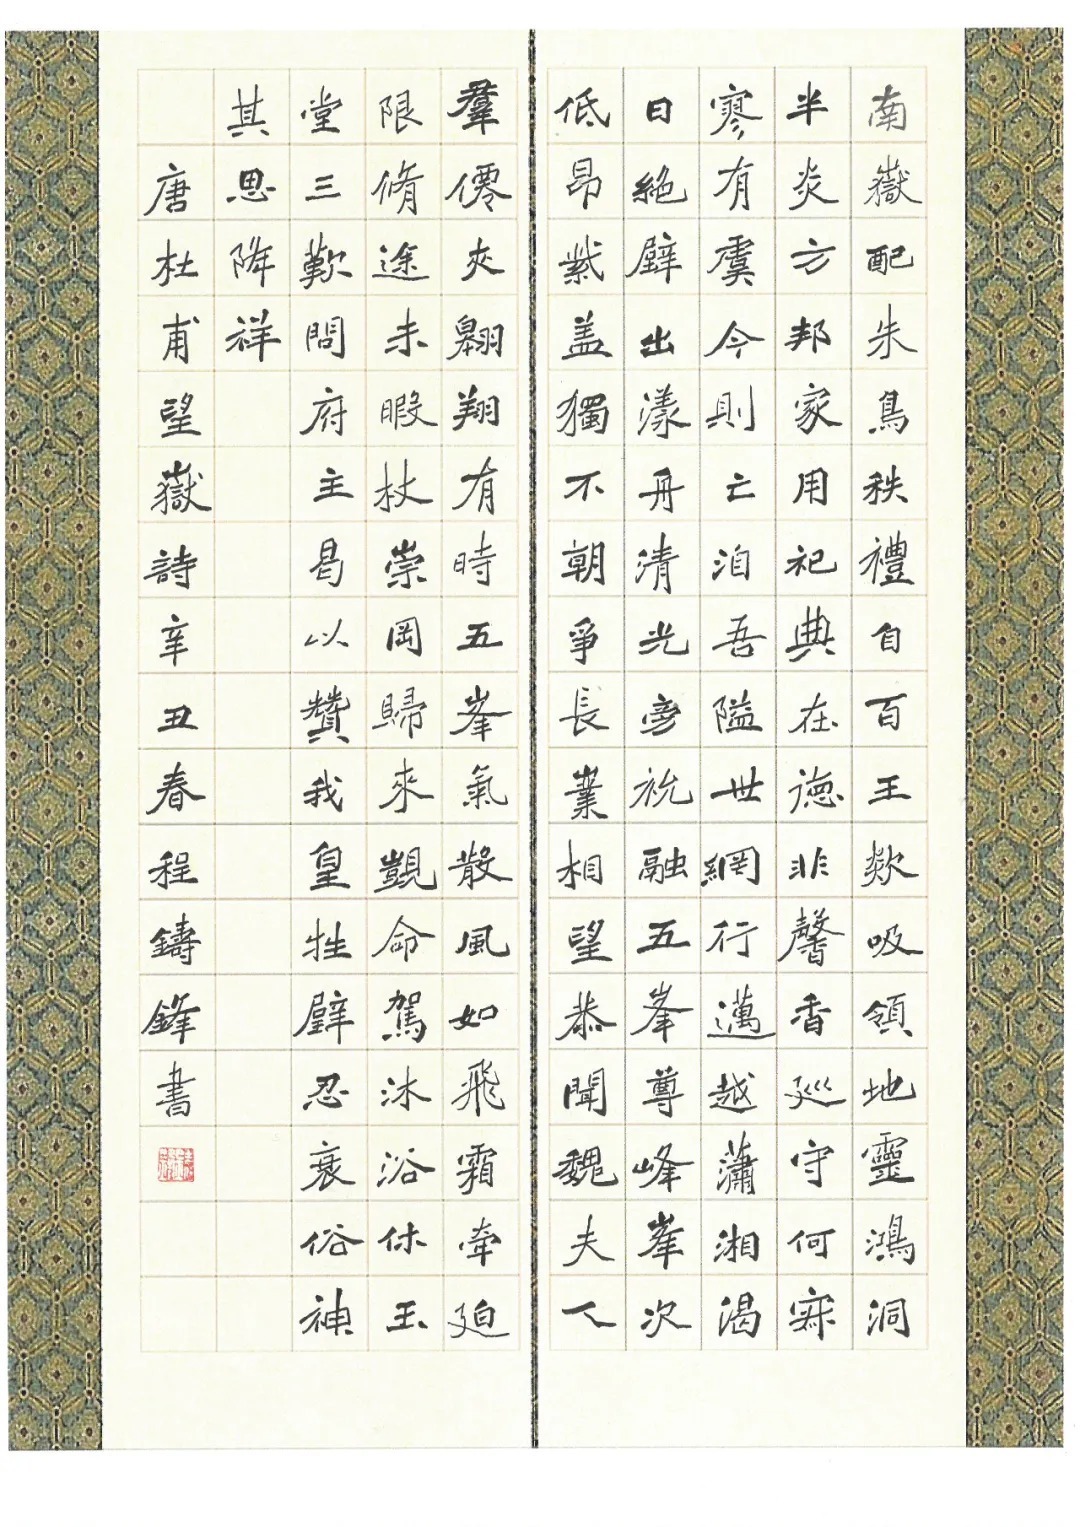 南嶽配朱鳥秩禮自百王欻吸領地靈鴻洞
半炎方邦家用祀典在德非馨香巡守何寂
寥有虞今則亡洎吾隘世網行邁越瀟湘渴
日絕壁出漾舟清光旁祝融五峯尊峰峯次
低昂紫盖獨不朝爭長嶪相望恭聞魏夫人
羣僊夾翱翔有時五峯氣散風如飛霜牽迫
限脩途未暇杖崇岡歸來覬命駕沐浴休玉
堂三歎問府主曷以贊我皇牲璧忍衰俗神
其思降祥
唐杜甫望嶽詩辛丑春程鑄鋒書